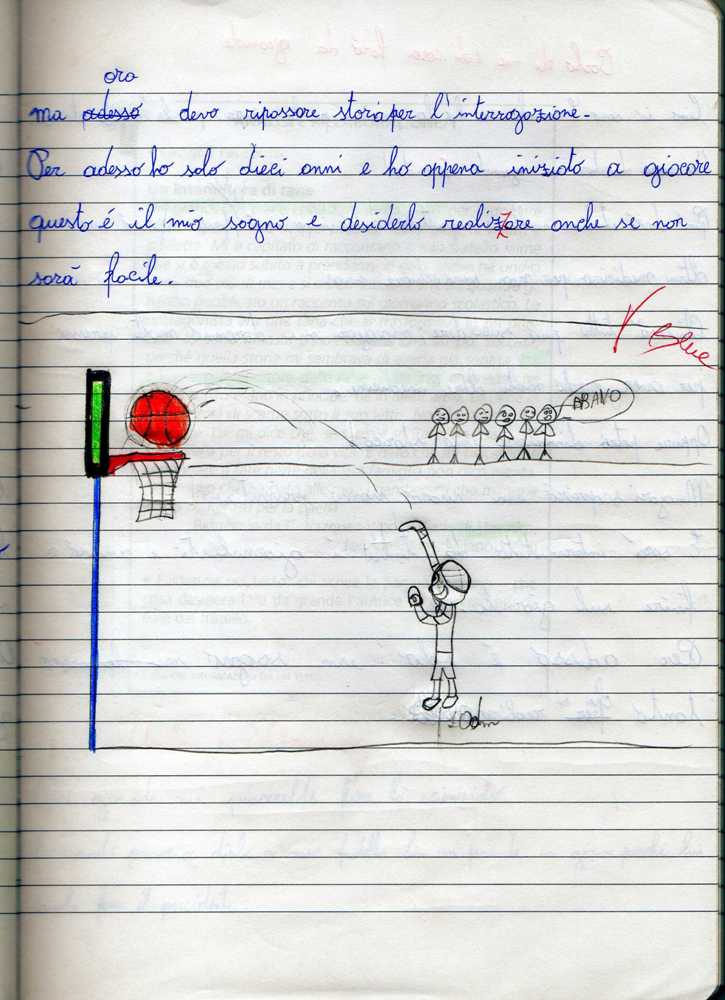 ora
ma adesso devo ripassare storia per l'interrogazione.
Per adesso ho solo dieci anni e ho appena iniziato a giocare
questo é il mio sogno e desiderlo realizzare anche se non
sará facile.
ABAVO